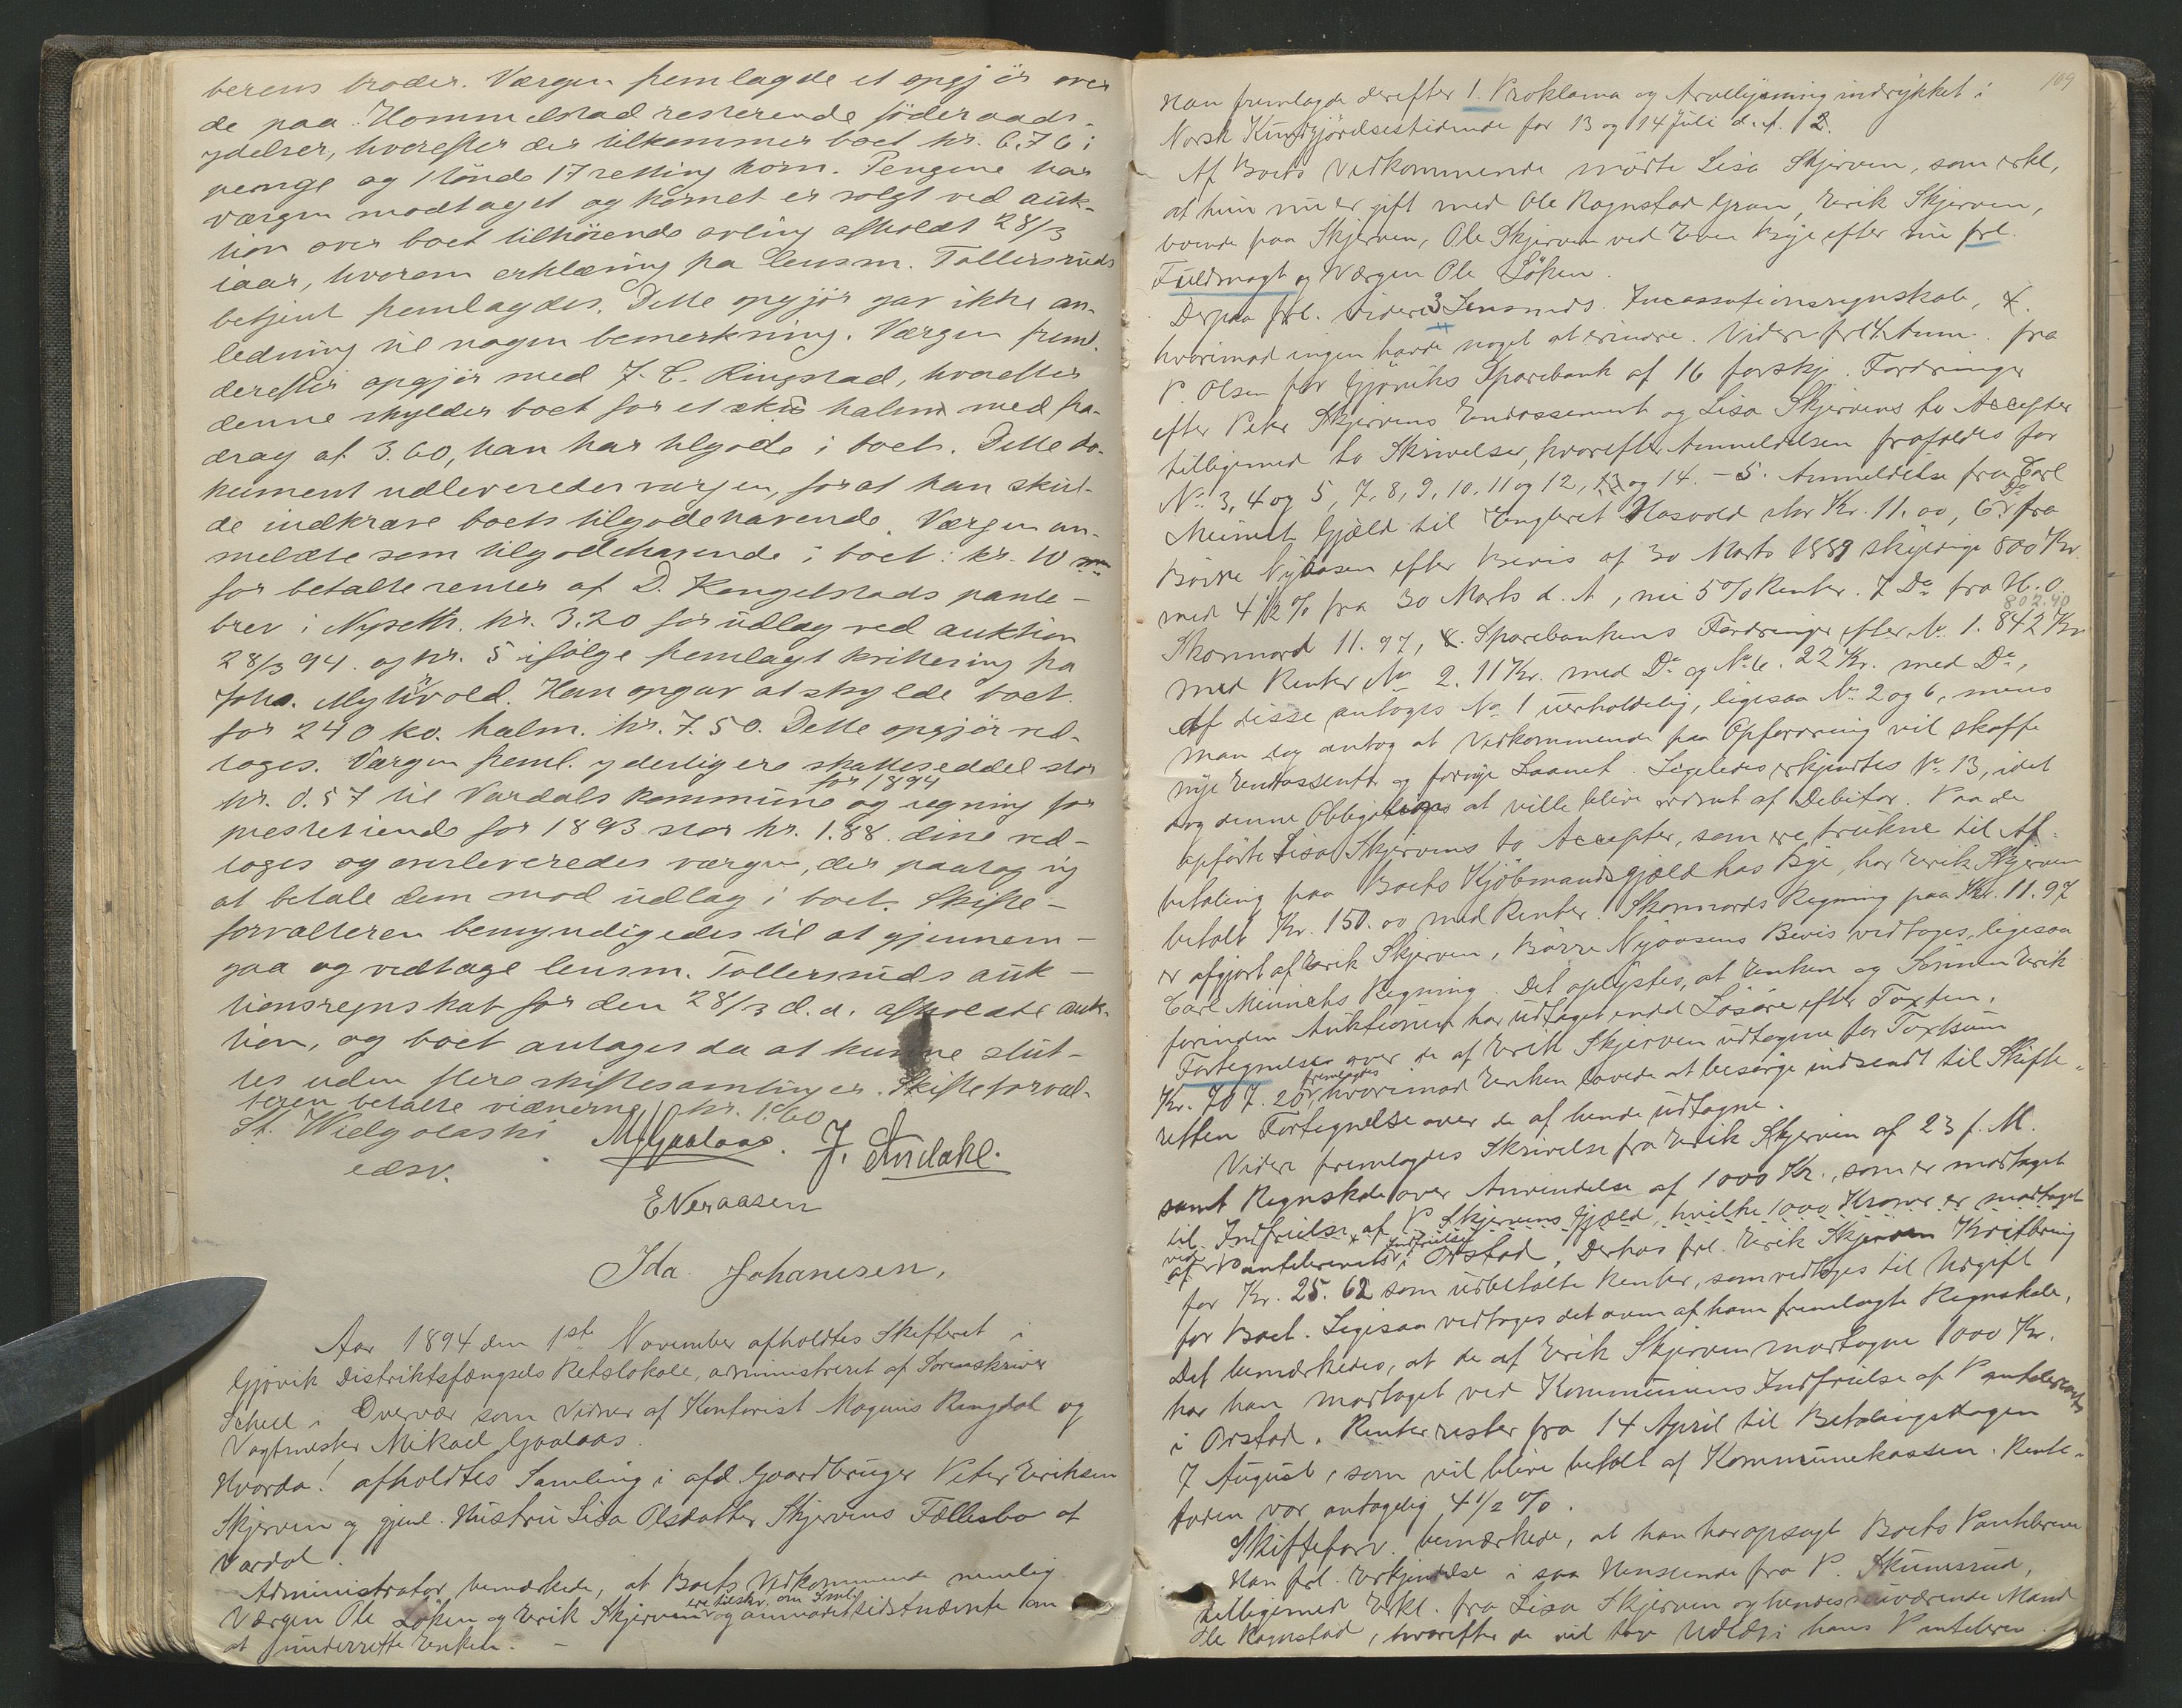 berens broder. Værgen fremlagde et opgjör over
de paa Hommelstad resterende föderaads-
ydelser, hvorefter der tilkommer boet kr. 6.76 i
penge og 1 tönde 17 sætting korn. Pengene har
værgen modtaget og kornet er solgt ved auk-
tion over boet tilhörende avling afholdt 28/3
iaar, hvorom erklæring fra lensm. Tollersruds
betjent fremlagdes. Dette opgjör gav ikke an-
ledning til nogen bemerkning. Værgen freml.
derefter opgjör med J. C. Ringstad, hvorefter
denne skylder boet for et halm med fra-
drag af 3.60, han har tilgode i boet. Dette do-
kument udleveredes værgen, for at han skul-
de indkræve boets tilgodehavende. Værgen an-
meldte som tilgodehavende i boet: kr. 10
for betalte renter af D. Kongelstads pante-
brev i Nyseth. kr. 3.20 for udlæg ved auktion
28/3 94. og kr. 5 ifölge fremlagt kvittering fra
Johs. Myhrvold. Han opgav at skylde boet
for 240 ko. halm. kr. 7.50. Dette opgjör ved-
toges. Værgen freml. yderligere skatteseddel stor
kr. 0.57 til Vardals kommune for 1894 og regning for
prestetiende for 1893 stor kr. 1.88. disse ved-
toges og overleveredes værgen, der paatog sig
at betale dem mod udlæg i boet. Skifte-
forvalteren bemyndigedes til at gjennem-
gaa og vedtage lensm. Tollersruds auk-
tionsregnskab for den 28/3 d.a. afholdte auk-
tion, og boet antages da at kunne slut-
tes uden flere skiftesamlinger. Skifteforval-
teren betalte vidnerne kr. 1.60
St. Wielgolaski M. Gaalaas. J. Andahl.
edsv.
E Neraasen
Ida Johanesen,
Aar 1894 den 1ste November afholdtes Skifteret i
Gjövik Distriktsfængsels Retslokale, administreret af Sorenskriver
Schell i Overvær som Vidner af Kontorist Magnus Ringdal og
Vagtmester Mikael Gaalaas.
Hvorda! afholdtes Samling i afd Gaardbruger Peter Eriksen
Skjerven og gjenl. Hustru Lisa Olsdatter Skjervens Fællesbo af
Vardal.
Administrator bemærkede, at Boets Vedkommende nemlig
Værgen Ole Löken og Erik Skjerven ere tilskr. om Saml. og anmodet sidstnævnte om
at underrette Enken. -
109
Han fremlagde derefter 1. Proklama og Arvelysning indrykket i
Norsk Kundgjörelsestidende for 13 og 14 Juli d. A. 2.
Af Boets Vedkommende mödte Lisa Skjerven, som erkl,
at hun nu er gift med Ole Rognstad Gran, Erik Skjerven,
boende paa Skjerven, Ole Skjerven ved Even Bye efter nu frl.
Fuldmagt og Værgen Ole Löken.
Derpaa frl. videre 3 Lensmds. Incassationsregnskab,
hvorimod ingen havde noget at erindre. Videre frl 4. Anm. fra
P. Olsen for Gjöviks Sparebank af 16 forskj. Fordringer
efter Peter Skjervens Endossement og Lisa Skjervens to Accepter
tilligemed to Skrivelser, hvorefter Anmeldelsen frafaldes for
No. 3, 4 og 5, 7, 8, 9, 10, 11 og 12, 13 og 14. - 5. Anmeldelse fra Carl
Meinich Gjæld til Hasvold stor Kr. 11.00, 6. Do fra
Börre Nyaasen efter Bevis af 30 Marts 1889 skyldige 800 Kr.
med 4 1/2 % fra 30 Marts d. A, nu 5 % Renter. 7 Do fra H. O.
802.40
Skonnord 11.97, 8. Sparebankens Fordringer efter No. 1. 842 Kr
med Renter No 2. 11 Kr. med Do og No 6. 22 Kr. med Do,
Af disse antoges No 1 uerholdelig, ligesaa No 2 og 6, mens
man dog antog at Vedkommende paa Opfordring vil skaffe
nye Endossenter og fornye Laanet. Ligeledes erkjendtes No. 13, idet
dog denne Obligation at ville blive ordnet af Debitor. Paa de
opförte Lisa Skjervens to Accepter, som ere trukne til Af-
betaling paa Boets Kjöbmandsgjæld hos Bye, har Erik Skjerven
betalt Kr. 150.00 med Renter. Skonnords Regning paa Kr. 11.97
er afgjort af Erik Skjerven, Börre Nyaasens Bevis vedtoges, ligesaa
Carl Meinichs Regning. Det oplystes, at Enken og Sönnen Erik
forinden Auktionen har udtaget endel Lösöre efter Taxten.
Fortegnelse over de af Erik Skjerven udtagne for Taxtsum
Kr. 707.20 fremlagdes, hvorimod Enken lovede at besörge indsendt til Skifte-
retten Fortegnelse over de af hende udtagne.
Videre fremlagdes Skrivelse fra Erik Skjerven af 23 f. M.
samt Regnskab over Anvendelse af 1000 Kr., som er modtaget
til Indfrielse af P. Skjervens Gjæld, hvilke 1000 Kroner er modtaget
ved af Pantebrevets Indfrielse i Orstad. Derhos frl. Erik Skjerven Kvittering
for Kr. 25.62 som udbetalte Renter, som vedtoges til Udgift
for Boet. Ligesaa vedtoges det oven af ham fremlagte Regnskab.
Det bemærkedes, at de af Erik Skjerven modtagne 1000 Kr.
har han modtaget ved Kommunens Indfrielse af Pantebrevet
i Orstad. Renter rester fra 14 April til Betalingsdagen
7 August, som vil blive betalt af Kommunekassen. Rente-
foden var antagelig 4 1/2 %.
Skifteforv. bemærkede, at han har opsagt Boets Pantebreve
Han frl. Erkjendelse i saa Henseende fra P. Skumsrud,
tilligemed Erkl. fra Lisa Skjerven og hendes nuværende Mand
Ole Rognstad, hvorefter de vil tage Udlæg i hans Pantebrev.